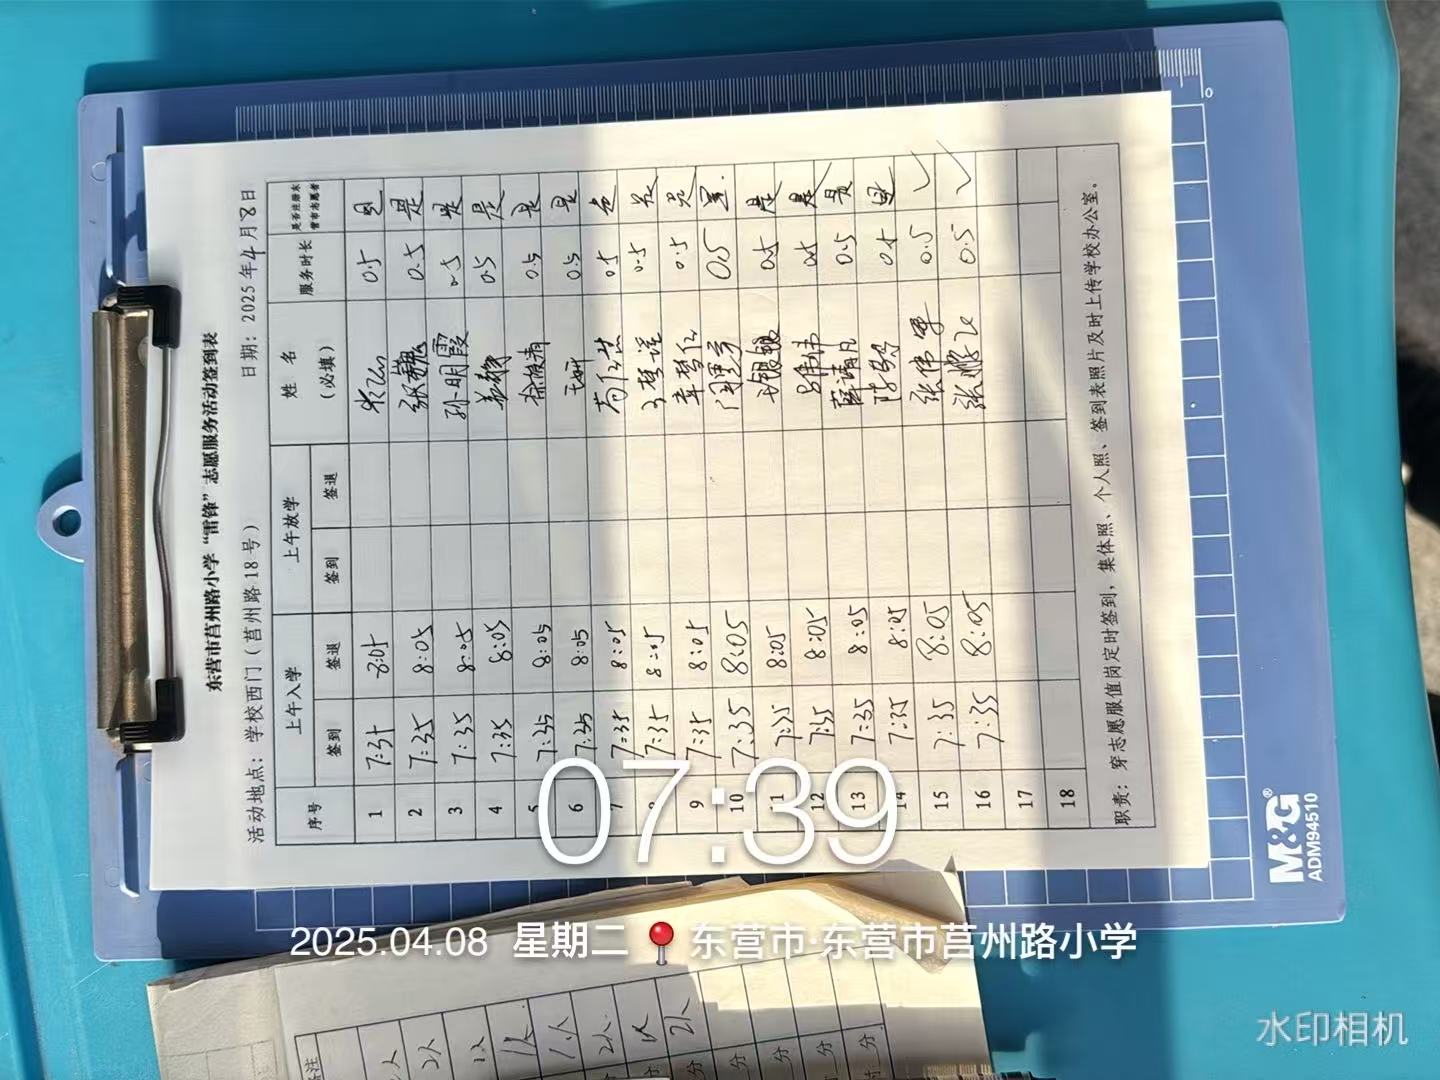 东营市莒州路小学“雷锋”志愿服务活动签到表
活动地点：学校西门（莒州路18号） 日期：2025年4月8日
序号 上午入学 上午放学 姓名 服务时长 是否注册东营市志愿者
签到 签退 签到 签退 （必填）
1 7:35 8:05 0.5 是
2 7:35 8:05 张巍 0.5 是
3 7:35 8:05 孙明霞 0.5 是
4 7:35 8:05 0.5 是
5 7:35 8:05 0.5 是
6 7:35 8:05 0.5 是
7 7:35 8:05 0.5 是
8 7:35 8:05 0.5 是
9 7:35 8:05 0.5 是
10 7:35 8:05 0.5 是
11 7:35 8:05 0.5 是
12 7:35 8:05 0.5 是
13 7:35 8:05 0.5 是
14 7:35 8:05 0.5 是
15 7:35 8:05 张伟军 0.5 ✓
16 7:35 8:05 0.5 ✓
17
18
职责：穿志愿服值岗定时签到，集体照、个人照、签到表照片及时上传学校办公室。
0
M&G®
ADM94510
07:39
2025.04.08 星期二 东营市·东营市莒州路小学
备注
2人
1人
1人
1人
2人
1人
2人
分
分
分
分
水印相机